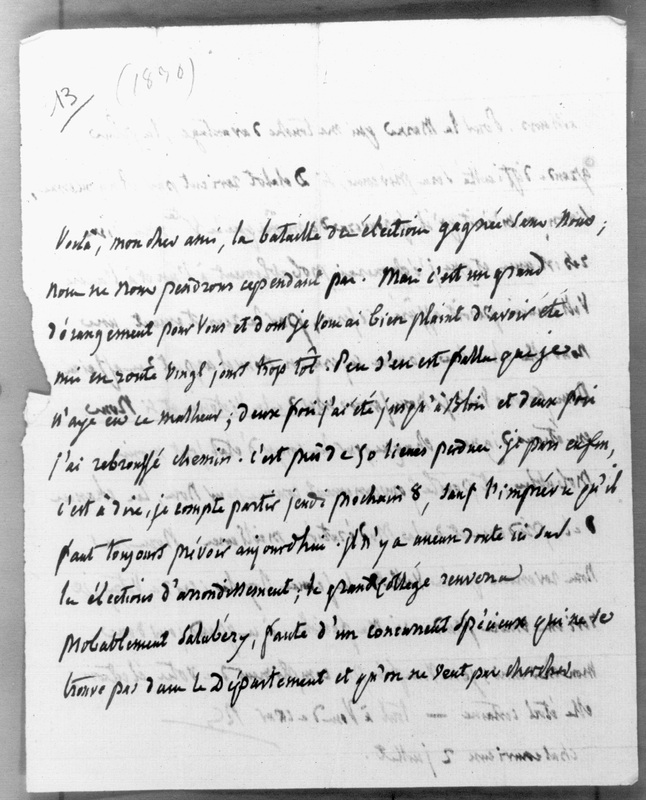 13 (1830)
Voilà, mon cher ami, la bataille des élections gagnée sans nous;
nous ne nous perdrons cependant pas. Mais c'est un grand
dérangement pour vous et dont je vous ai bien plaint d'avoir été
mis en route vingt jours trop tôt. Peu s'en est fallu que je
n'aye eu ce malheur; deux fois j'ai été jusqu'à Blois et deux fois
j'ai rebroussé chemin. c'est près de 50 lieues perdues. Je pars enfin,
c'est à dire, je compte partir jeudi prochain 8, sauf l'imprévu qu'il
faut toujours prévoir aujourd'hui. il n'y a aucun doute ici sur
les élections d'arrondissement; le grand collége renverra
probablement Salabéry, faute d'un concurrent spécieux qui ne se
trouve pas dans le Département et qu'on ne veut pas chercher